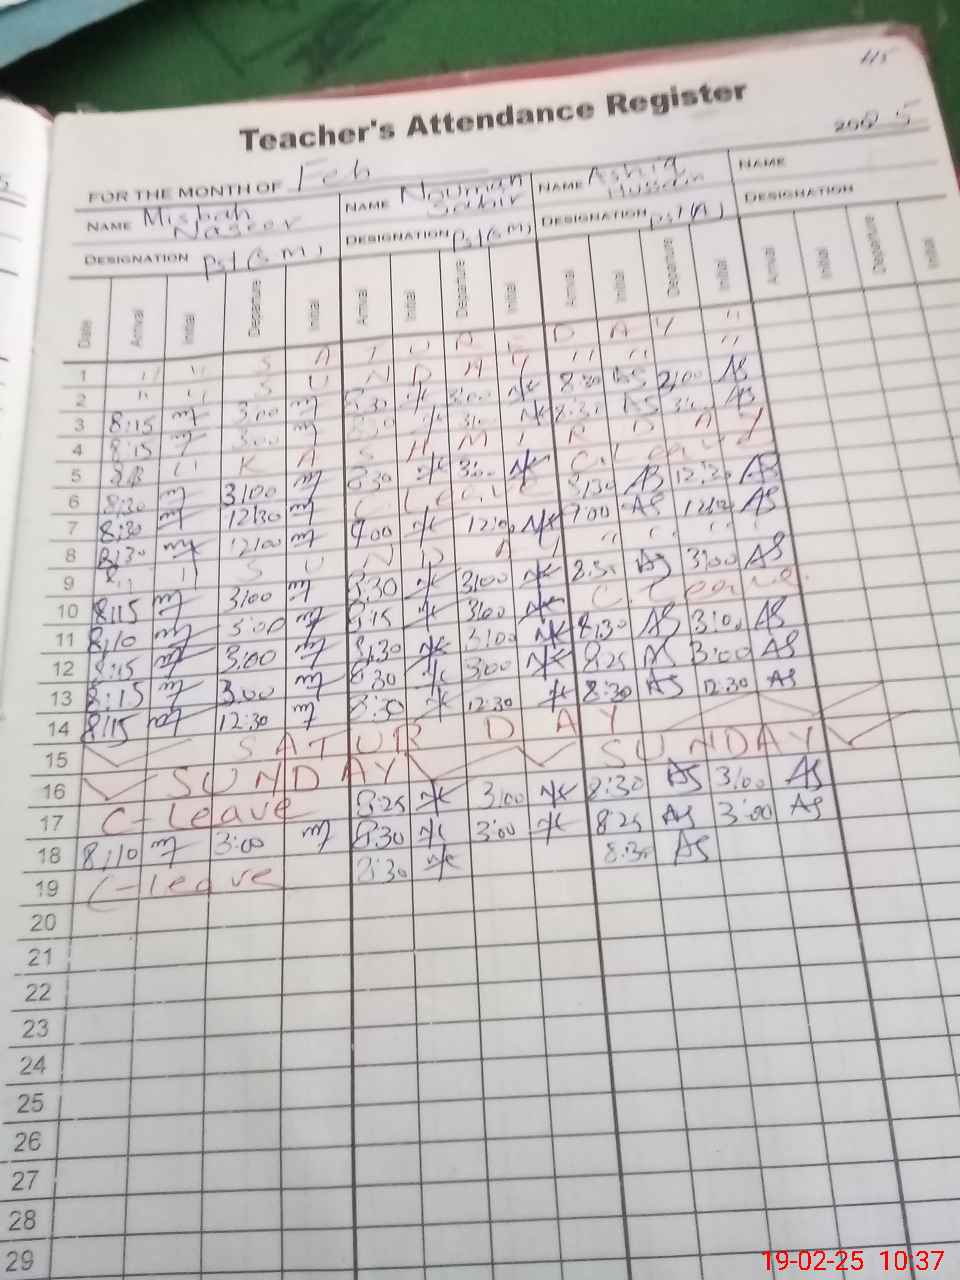 115
Teacher's Attendance Register
FOR THE MONTH OF Feb 2025
NAME Misbah Naseer NAME Nouman Sabir NAME Ashiq Hussain NAME
DESIGNATION Pst (S.M) DESIGNATION Pst (S.M) DESIGNATION Pst (A) DESIGNATION
Date Arrival Initial Departure Initial Arrival Initial Departure Initial Arrival Initial Departure Initial Arrival Initial Departure Initial
1 " " S A T U R D A Y "
2 " " S U N D A Y " " "
3 8:15 3:00 8:30 3:00 8:30 AS 3:00 AS
4 8:15 3:00 3:00 8:30 AS 3:00 AS
5 K A S H M I R D A Y
6 8:30 3:00 8:30 3:00 C. Leave
7 8:30 12:30 C Leave 8:30 AS 12:30 AS
8 8:30 12:00 9:00 12:00 9:00 AS 12:00 AS
9 S U N D A Y " " " "
10 8:15 3:00 8:30 3:00 8:30 AS 3:00 AS
11 8:10 3:00 8:15 3:00 C. Leave
12 8:15 3:00 8:30 3:00 8:30 AS 3:00 AS
13 8:15 3:00 8:30 3:00 8:25 AS 3:00 AS
14 8:15 12:30 8:30 12:30 8:30 AS 12:30 AS
15 S A T U R D A Y
16 S U N D A Y S U N D A Y
17 C- Leave 8:25 3:00 8:30 AS 3:00 AS
18 8:10 3:00 8:30 3:00 8:25 AS 3:00 AS
19 C- leave 8:30 8:30 AS
20
21
22
23
24
25
26
27
28
29
19-02-25 10:37